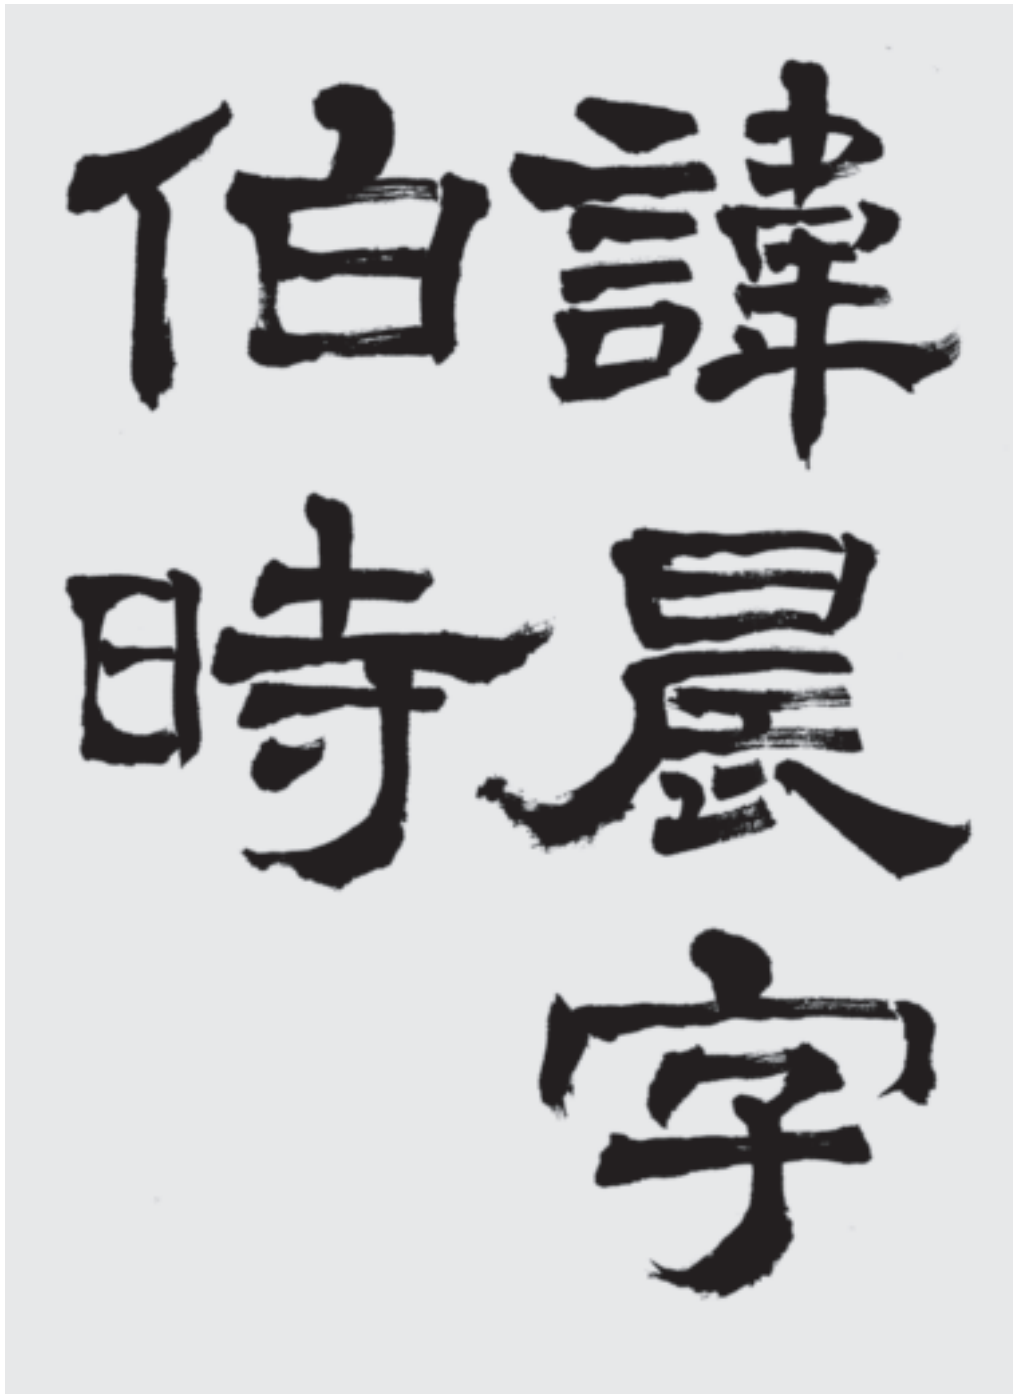 諱晨字
伯時